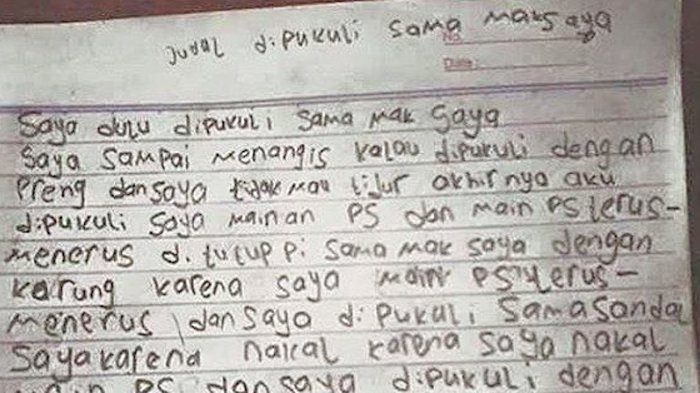 Judal dipukuli sama maksaya
No.
Date:
Saya dulu dipukuli sama mak saya
Saya sampai menangis kalau dipukuli dengan
Preng dan saya tidak mau tidur akhirnya aku
dipukuli saya mainan PS dan main PS terus-
menerus di tutuppi sama mak saya dengan
karung karena saya main PS terus-
menerus dan saya dipukuli sama sandal
saya karena nakal karena saya nakal
main PS dan saya dipukuli dengan